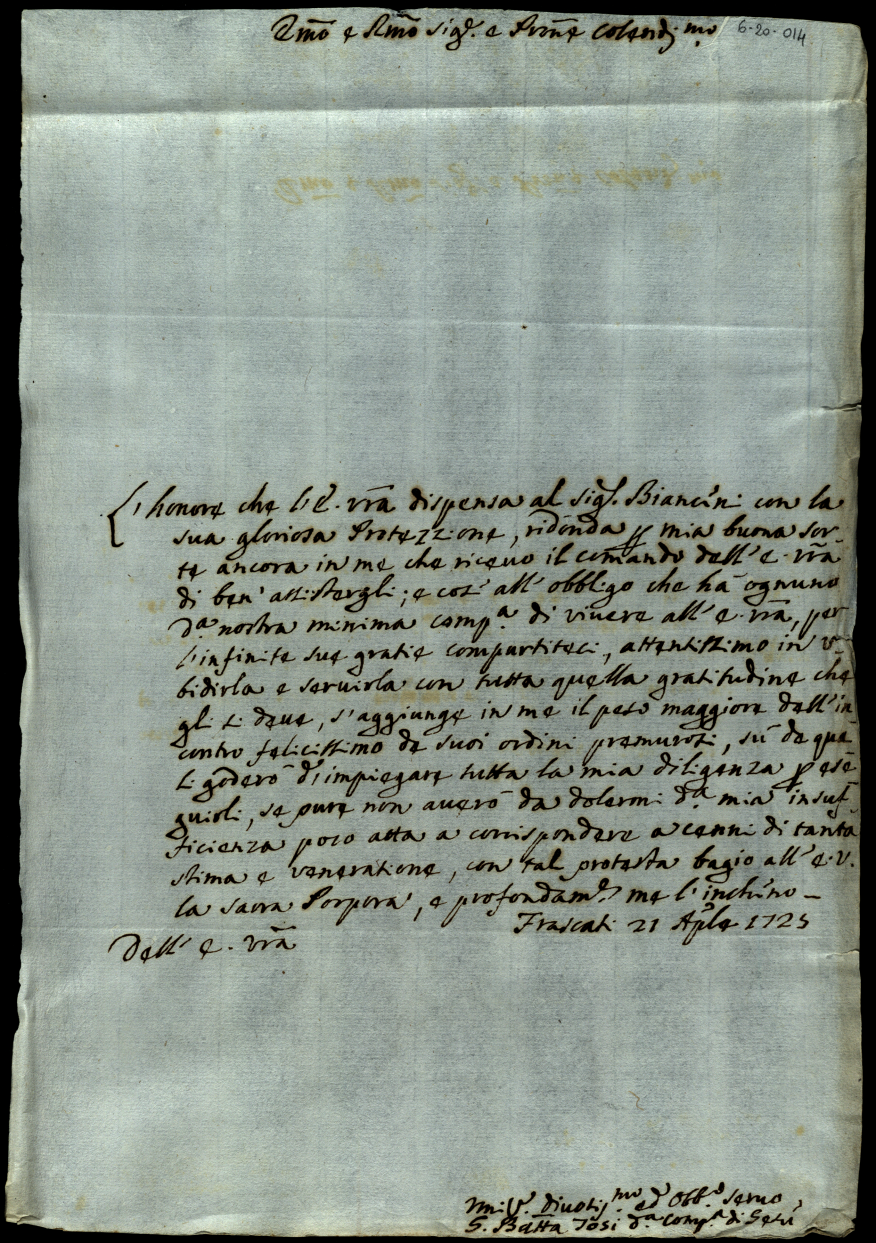 Emõ e Rmõ Sig.r e Prõne Colendis.mo
6-20-014
L'honore che l'E. Vrã dispensa al Sig.r Biancini con la
sua gloriosa Protezzione, ridonda p mia buona sor-
te ancora in me che ricevo il comando dell'E. Vrã
di ben' assistergli; e così all'obbligo che hà ognuno
d.a nostra minima comp.a di vivere all'E. Vrã, per
l'infinite sue gratie compartiteci, attentissimo in u-
bidirla e servirla con tutta quella gratitudine che
gli si deve, s'aggiunge in me il peso maggiore dell'in
contro felicissimo de suoi ordini premurosi, sù de que
li goderò d'impiegare tutta la mia diligenza p ese
guirli, se pure non averò da dolermi d.a mia insuf-
ficienza poco atta a corrispondere a cenni di tanta
stima e veneratione, con tal protesta bagio all'E.V.
la sacra Porpora, e profondam.te me l'inchino _
Frascati 21 Aple 1725
Dell'E. Vrã
Umil.o Divotis.mo ed Obb.o servo
G. Batta Tosi d.a Comp.a di Gesù